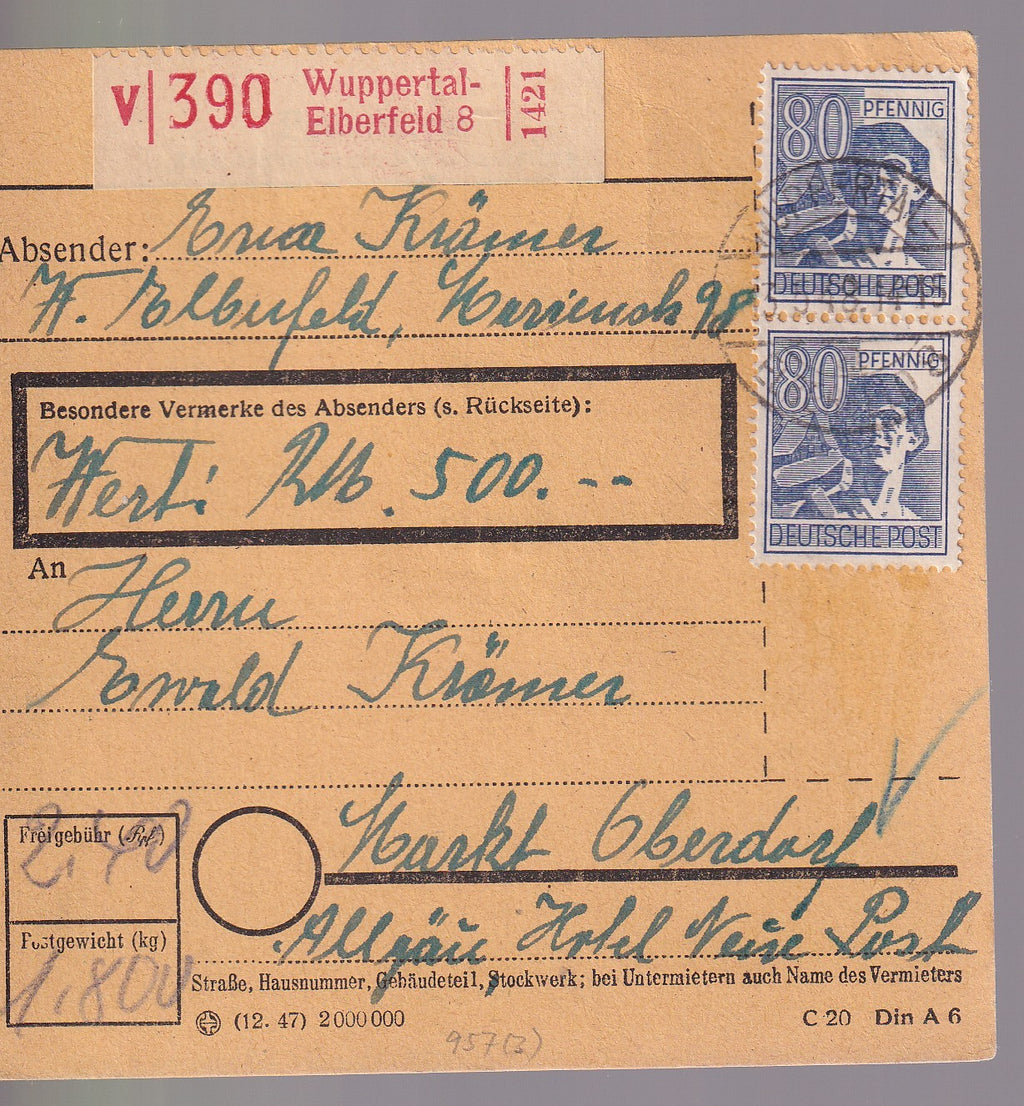 V 390 Wuppertal-
Elberfeld 8 1421
80 PFENNIG
DEUTSCHE POST
80 PFENNIG
DEUTSCHE POST
WUPPERTAL
Absender: Erica Krämer
W. Elberfeld, 98
Besondere Vermerke des Absenders (s. Rückseite):
Wert: RM. 500. --
An Herrn
Ewald Krämer
Markt Oberdorf
Allgäu, Hotel Neue Post
Freigebühr (Rpf.)
2,40
Postgewicht (kg)
1,800
Straße, Hausnummer, Gebäudeteil, Stockwerk; bei Untermietern auch Name des Vermieters
(12. 47) 2 000 000
C 20 Din A 6
957(3)